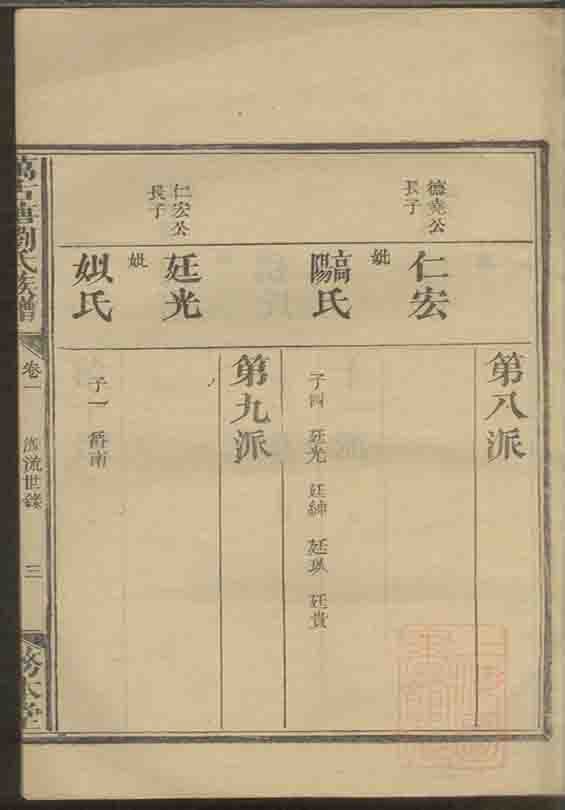 第八派
德堯公
長子
仁宏
妣
氏
子四 廷光 廷紳 廷 廷貴
第九派
仁宏公
長子
廷光
妣
姒氏
子一 爵南
劉氏族譜
卷一
源流世錄
三
務本堂